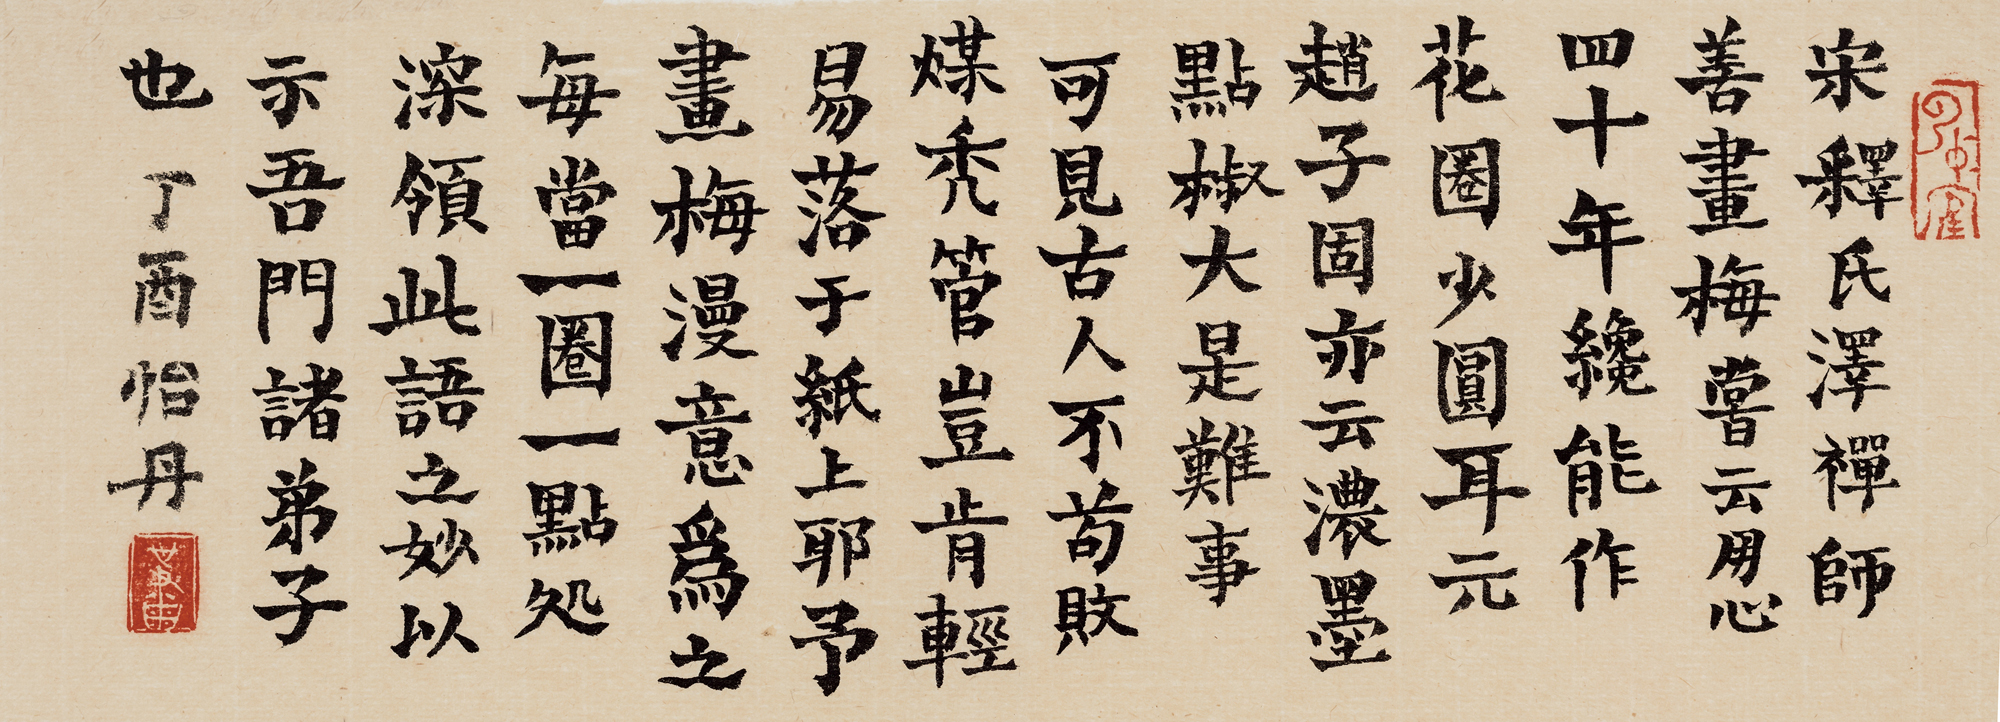 宋釋氏澤禪師
善畫梅嘗云用心
四十年纔能作
花圈少圓耳元
趙子固亦云濃墨
點椒大是難事
可見古人不苟敗
煤禿管豈肯輕
易落于紙上耶予
畫梅漫意爲之
每當一圈一點処
深領此語之妙以
示吾門諸弟子
也 丁酉怡丹